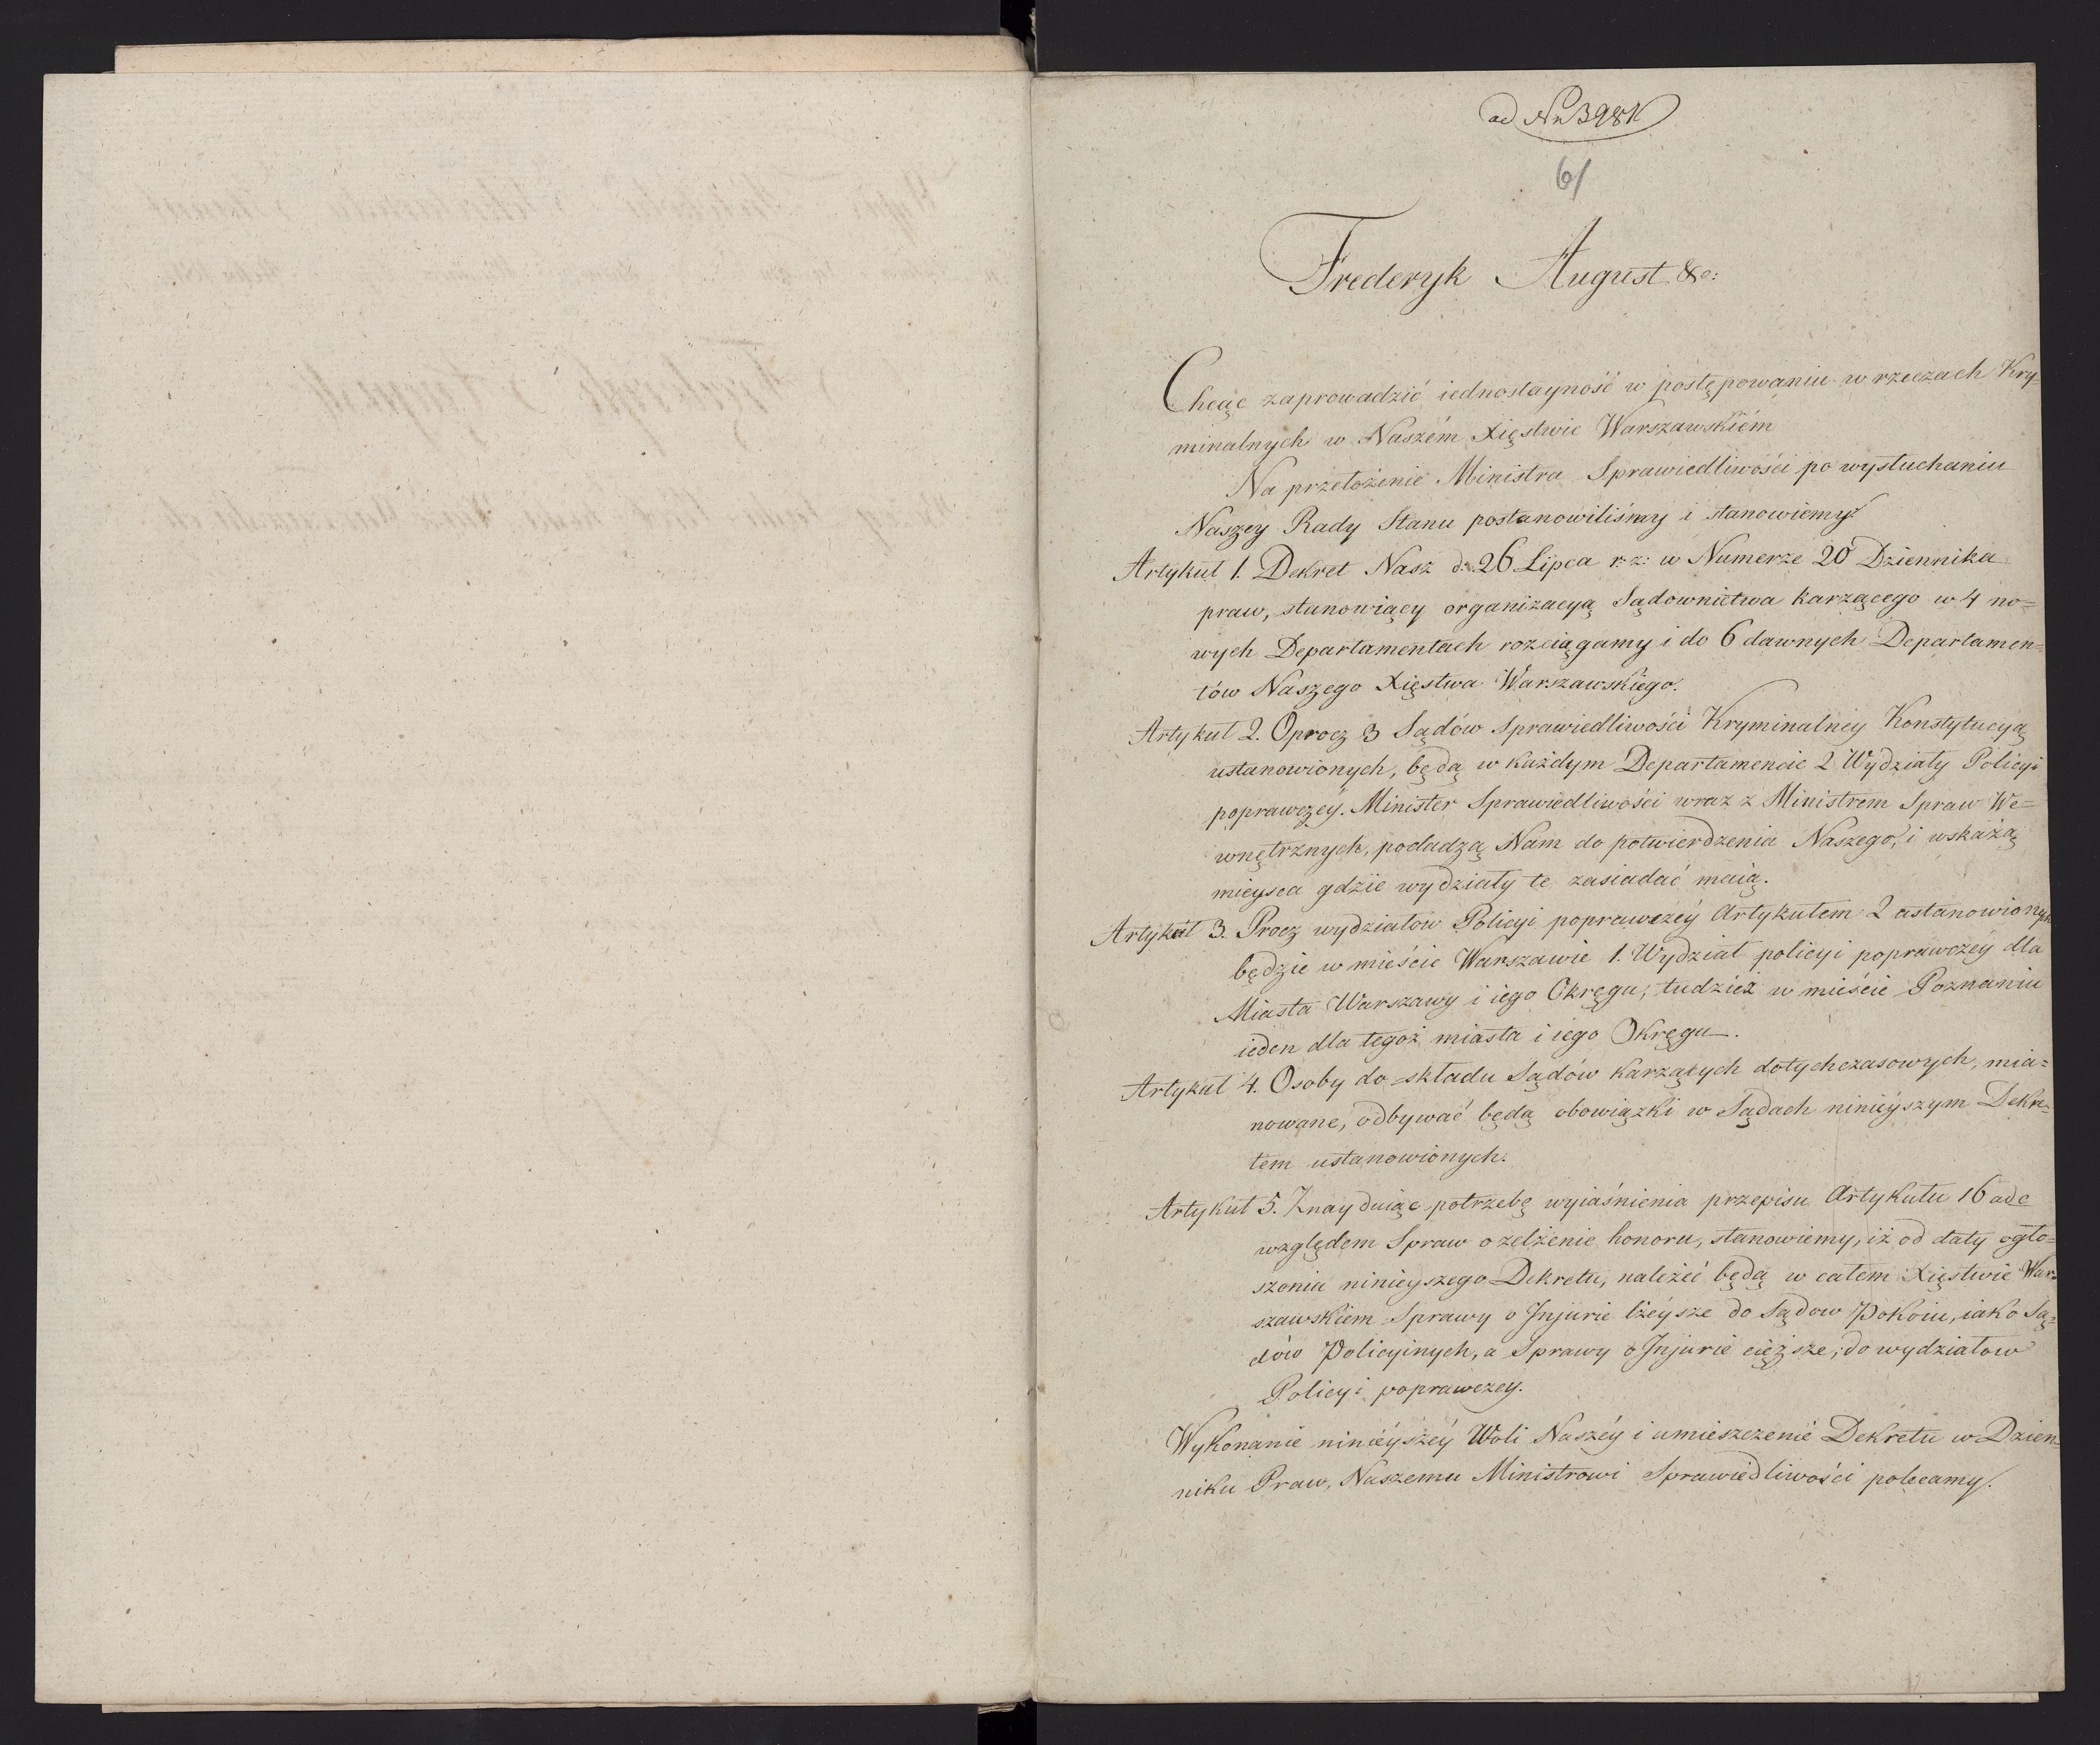 ad Nn 398K
61
Frederyk August &c:
Chcąc zaprowadzić iednostayność w postępowaniu w rzeczach Kry-
minalnych w Naszém Xięstwie Warszawskiém
Na przełożenie Ministra Sprawiedliwości po wysłuchaniu
Naszey Rady Stanu postanowiliśmy i stanowiemy:
Artykuł 1. Dekret Nasz d: 26 Lipca r: z: w Numerze 20 Dziennika
praw, stanowiący organizacyą Sądownictwa karzącego w 4 no=
wych Departamentach rozciągamy i do 6 dawnych Departamen=
tów Naszego Xięstwa Warszawskiego.
Artykuł 2. Oprocz 3 Sądów Sprawiedliwości Kryminalney Konstytucyą
ustanowionych, będą w każdym Departamencie 2 Wydziały Policyi
poprawczéy. Minister Sprawiedliwości wraz z Ministrem Spraw We=
wnętrznych, podadzą Nam do potwierdzenia Naszego, i wskażą
mieysca gdzie wydziały te zasiadać maią.
Artykuł 3. Procz wydziałow Policyi poprawczéy Artykułem 2 ustanowionych
będzie w mieście Warszawie 1. Wydział policyi poprawczéy dla
Miasta Warszawy i iego Okręgu, tudzież w mieście Poznaniu
ieden dla tegoż miasta i iego Okręgu.
Artykuł 4. Osoby do składu Sądów karzących dotychczasowych, mia=
nowane, odbywać będą obowiązki w Sądach ninieyszym Dekre-
tem ustanowionych.
Artykuł 5. Znayduiąc potrzebę wyiaśnienia przepisu Artykułu 16 ad c
względem Spraw o zelżenie honoru, stanowiemy, iż od daty ogło=
szenia ninieyszego Dekretu, należeć będą w całem Xięstwie War=
szawskiem Sprawy o Injurie lżéysze do Sądow Pokoiu, iako Są=
dów Policyinych, a Sprawy o Injurie cięższe, do wydziałow
Policyi poprawczey.
Wykonanie ninieyszéy Woli Naszéy i umieszczenie Dekretu w Dzien-
niku Praw, Naszemu Ministrowi Sprawiedliwości polecamy.